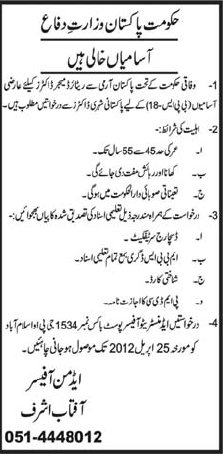 حکومت پاکستان وزارتِ دفاع
آسامیاں خالی ہیں
1- وفاقی حکومت کے تحت پاکستان آرمی سے ریٹائرڈ میجر ڈاکٹرز کیلئے عارضی
آسامیوں (بی پی ایس-18) کے لیے پاکستانی شہری ڈاکٹرز سے درخواستیں مطلوب ہیں۔
2- اہلیت کی شرائط:-
ا۔ عمر کی حد 45 سے 55 سال تک۔
ب۔ کھانا اور رہائش مفت دی جائے گی۔
ج۔ تعیناتی صوبائی دارالحکومت میں ہوگی۔
3- درخواست کے ہمراہ مندرجہ ذیل تعلیمی اسناد کی تصدیق شدہ کاپیاں بھجوائیں:-
ا۔ ڈسچارج سرٹیفکیٹ۔
ب۔ ایم بی بی ایس ڈگری بمع تمام تعلیمی اسناد۔
ج۔ شناختی کارڈ۔
د۔ پی ایم ڈی سی کا اجازت نامہ۔
4- درخواستیں ایڈمنسٹریٹو آفیسر پوسٹ بکس نمبر 1534 جی پی او اسلام آباد
کو مورخہ 25 اپریل 2012 تک موصول ہو جانی چاہئیں۔
ایڈمن آفیسر
آفتاب اشرف
051-4448012